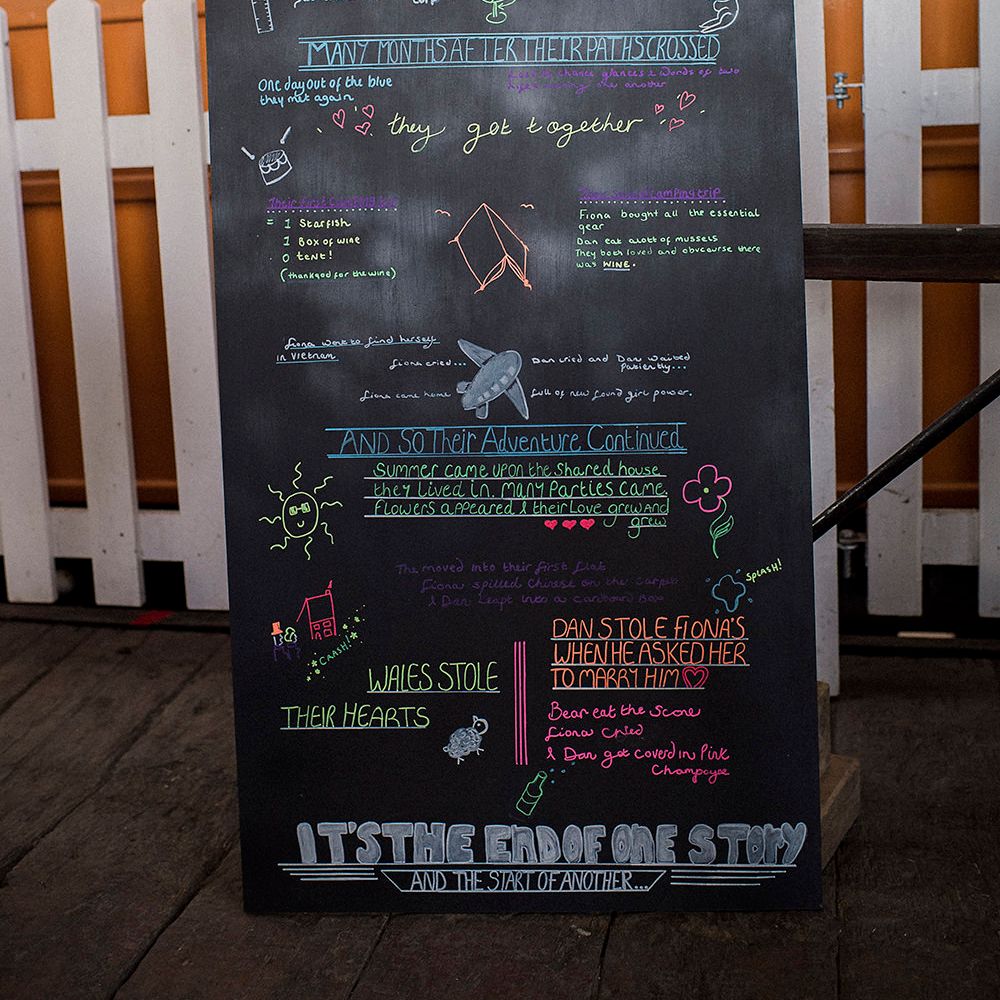 MANY MONTHS AFTER THEIR PATHS CROSSED
One day out of the blue
they met again
chance glances & words of two
one another
they got together
Their first camping trip
= 1 Starfish
1 Box of wine
0 tent!
(thankgod for the wine)
camping trip
Fiona bought all the essential
gear
Dan eat alott of mussels
They both loved and obvcourse there
was WINE.
Fiona went to find herself
in Vietnam
Fiona cried...
Dan cried and Dan waited
patiently...
Fiona came home
full of new found girl power.
AND SO Their Adventure Continued
Summer came upon the shared house
they lived in. Many Parties came.
Flowers appeared & their Love grew and
grew
The moved into their first flat
Fiona spilled Chinese on the carpet
& Dan Leapt into a cardboard Box
SPLASH!
CRASH!
WALES STOLE
THEIR HEARTS
DAN STOLE FIONA'S
WHEN HE ASKED HER
TO MARRY HIM
Bear eat the Scone
Fiona Cried
& Dan got coverd in Pink
Champayge
IT'S THE END OF ONE STORY
AND THE START OF ANOTHER...